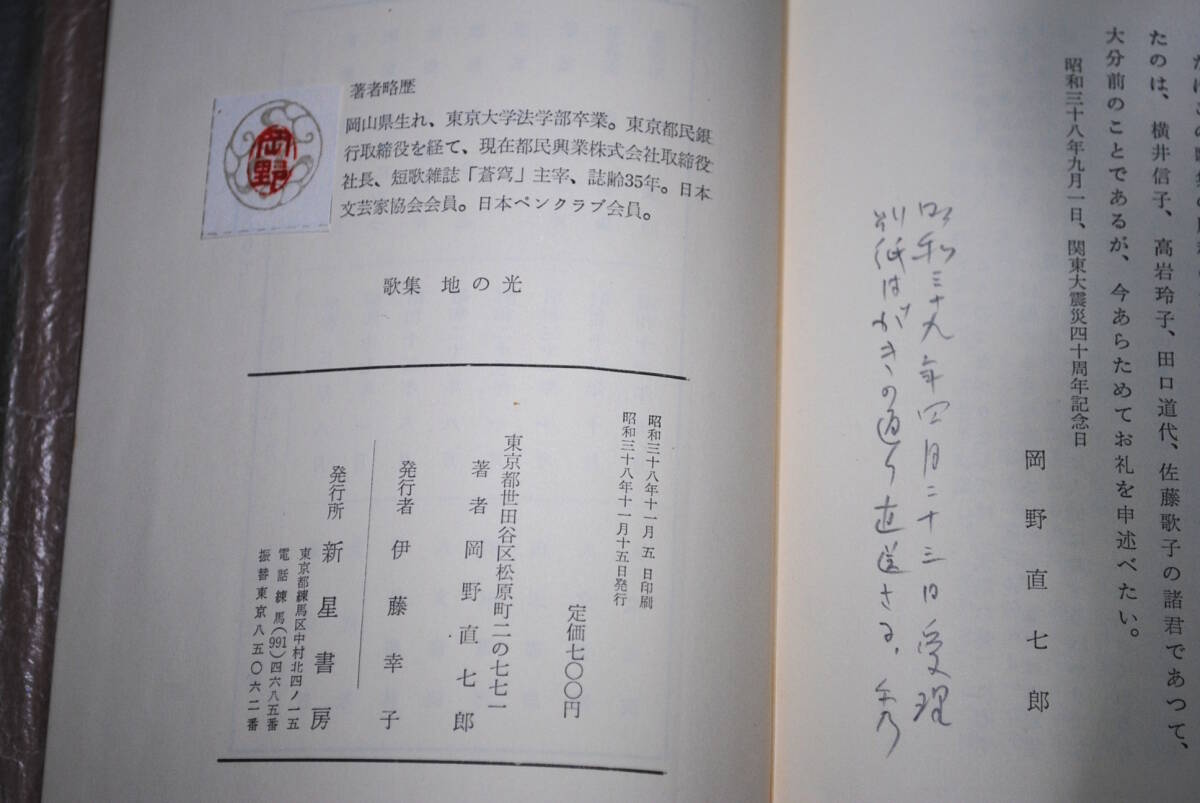 たのは、横井信子、高岩玲子、田口道代、佐藤歌子の諸君であつて、
大分前のことであるが、今あらためてお礼を申述べたい。
昭和三十八年九月一日、関東大震災四十周年記念日
岡野直七郎
昭和三十九年四月二十三日受理
別紙はがきの通り直送さる、
岡野
著者略歴
岡山県生れ、東京大学法学部卒業。東京都民銀
行取締役を経て、現在都民興業株式会社取締役
社長、短歌雑誌「蒼穹」主宰、誌齢35年。日本
文芸家協会会員。日本ペンクラブ会員。
歌集 地の光
昭和三十八年十一月五日印刷
昭和三十八年十一月十五日発行
定価七〇〇円
東京都世田谷区松原町二の七七一
著者 岡野直七郎
発行者 伊藤幸子
発行所 新星書房
東京都練馬区中村北四ノ一五
電話練馬(991)四六八五番
振替東京八五〇六二番